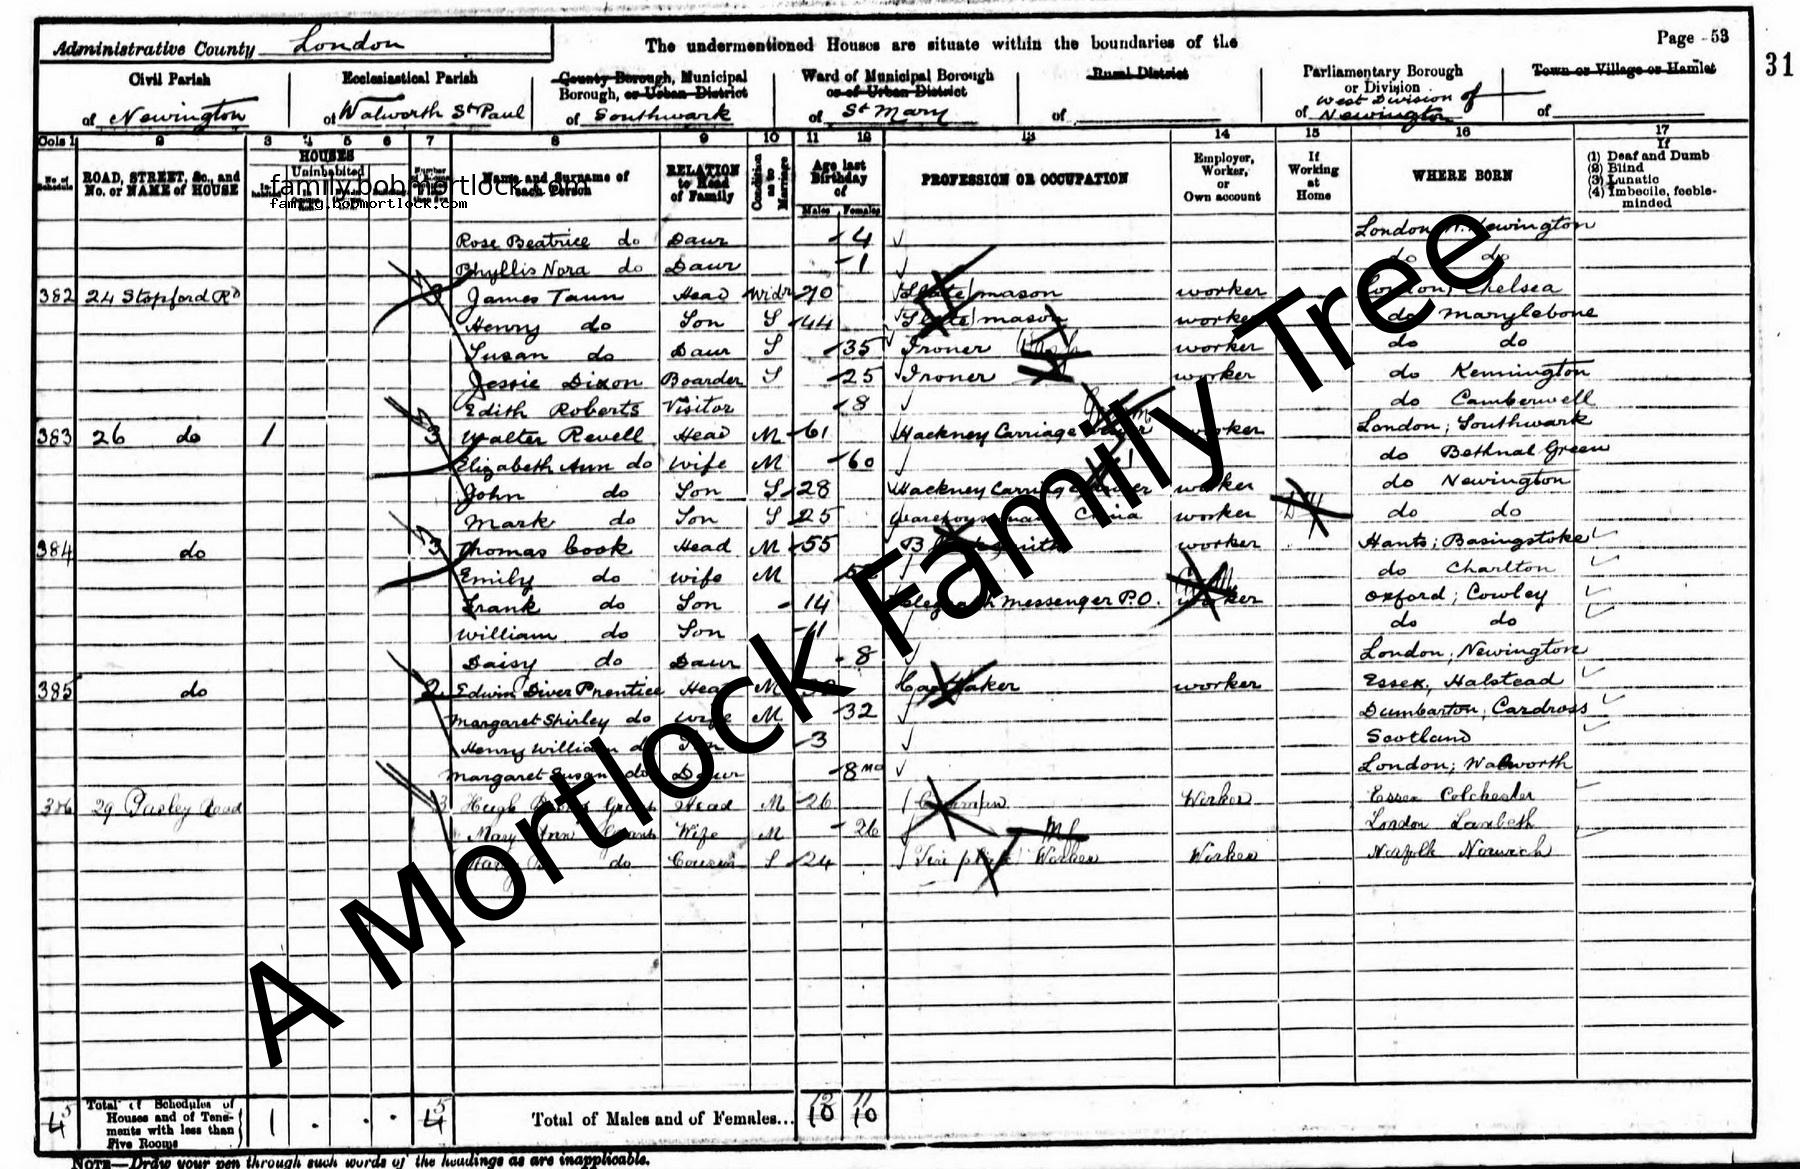 Administrative County London
The undermentioned Houses are situate within the boundaries of the
Page 53
31
Civil Parish of Newington
Ecclesiastical Parish of Walworth St Paul
County Borough, Municipal Borough, or Urban District of Southwark
Ward of Municipal Borough or of Urban District of St Mary
Rural District of
Parliamentary Borough or Division of West Division of Newington
Town or Village or Hamlet of
Cols 1 2 3 4 5 6 7 8 9 10 11 12 13 14 15 16 17
No. of Schedule
ROAD, STREET, &c., and No. or NAME of HOUSE
HOUSES
Uninhabited
Name and Surname of each Person
RELATION to Head of Family
Condition as to Marriage
Age last Birthday of
Males Females
PROFESSION OR OCCUPATION
Employer, Worker, or Own account
If Working at Home
WHERE BORN
If
(1) Deaf and Dumb
(2) Blind
(3) Lunatic
(4) Imbecile, feeble-minded
family.bobmortlock.com
family.bobmortlock.com
Rose Beatrice do Daur 4 London Newington
Phyllis Nora do Daur 1 do do
382 24 Stopford Rd 3 James Taun Head Widr 70 mason worker London, Chelsea
Henry do Son S 44 mason worker do Marylebone
Susan do Daur S 35 Ironer worker do do
Jessie Dixon Boarder S 25 Ironer worker do Kennington
Edith Roberts Visitor 8 do Camberwell
383 26 do 1 3 Walter Revell Head M 61 Hackney Carriage worker London; Southwark
Elizabeth Ann do Wife M 60 do Bethnal Green
John do Son S 28 Hackney worker do Newington
Mark do Son S 25 China worker do do
384 do 3 Thomas Cook Head M 55 worker Hants; Basingstoke
Emily do Wife M do Charlton
Frank do Son 14 Messenger P.O. worker Oxford; Cowley
William do Son 11 do do
Daisy do Daur 8 London; Newington
385 do 2 Edwin Diver Prentice Head M worker Essex, Halstead
Margaret Shirley do Wife M 32 Dumbarton, Cardross
Henry William do Son 3 Scotland
Margaret Susan do Daur 8 mo London; Walworth
386 29 Pasley Road 3 Hugh Head M 26 Worker Essex Colchester
Mary Ann Wife M 26 London Lambeth
do Cousin S 24 Tin Worker Worker Norfolk Norwich
A Mortlock Family Tree
Total of Schedules of Houses and of Tenements with less than Five Rooms
4 5 1 4 5
Total of Males and of Females... 10 12 10 11
NOTE—Draw your pen through such words of the headings as are inapplicable.